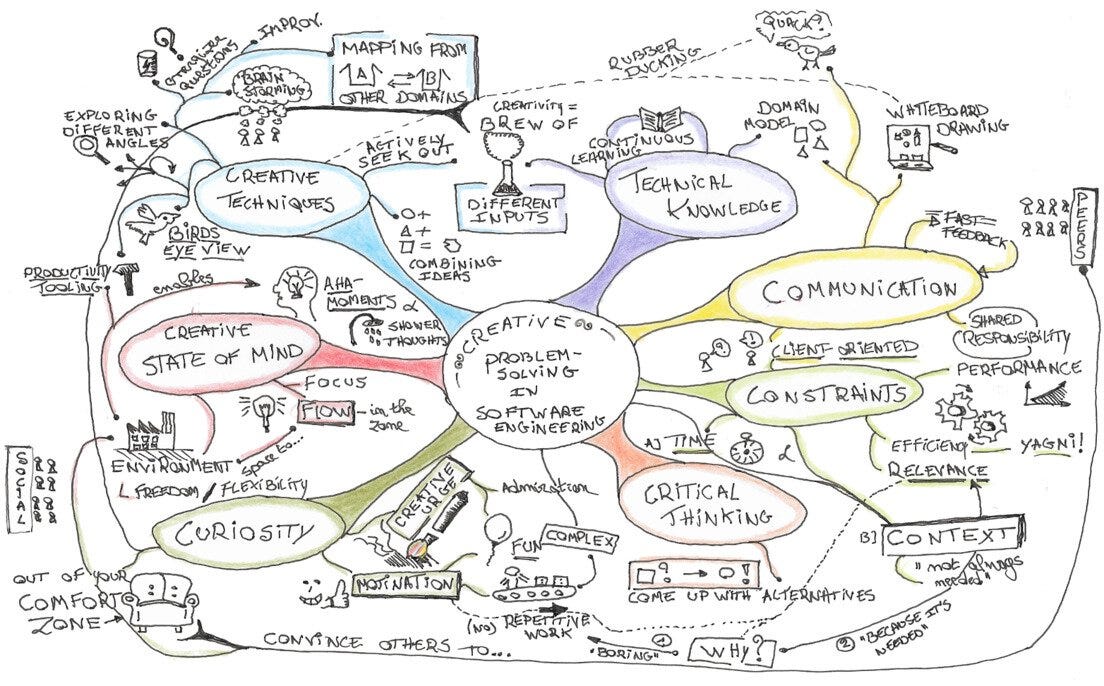 IMPROV.
Energizer
Questions
MAPPING FROM
A
B
OTHER DOMAINS
BRAIN
STORMING
EXPLORING
DIFFERENT
ANGLES
ACTIVELY
SEEK OUT
CREATIVE
TECHNIQUES
BIRDS
EYE VIEW
O+
Δ+
□=
COMBINING
IDEAS
CREATIVITY =
BREW OF
DIFFERENT
INPUTS
RUBBER
DUCKING
QUACK?
CONTINUOUS
LEARNING
TECHNICAL
KNOWLEDGE
DOMAIN
MODEL
WHITEBOARD
DRAWING
PEERS
FAST
FEEDBACK
COMMUNICATION
SHARED
RESPONSIBILITY
CLIENT-ORIENTED
PRODUCTIVITY
TOOLING
enables
AHA-
MOMENTS &
SHOWER
THOUGHTS
CREATIVE
STATE OF MIND
FOCUS
FLOW - in the
zone
space to...
ENVIRONMENT
FREEDOM / FLEXIBILITY
SOCIAL
CREATIVE
PROBLEM-
SOLVING
IN
SOFTWARE
ENGINEERING
CONSTRAINTS
PERFORMANCE
EFFICIENCY
YAGNI!
RELEVANCE
A] TIME
&
B] CONTEXT
"not always
needed"
CRITICAL
THINKING
□? → O!
COME UP WITH ALTERNATIVES
CURIOSITY
CREATIVE
URGE
Admiration
FUN
COMPLEX
MOTIVATION
(NO) REPETITIVE
WORK
OUT OF YOUR
COMFORT
ZONE
CONVINCE OTHERS TO...
1
"BORING"
WHY?
2 "BECAUSE IT'S
NEEDED"